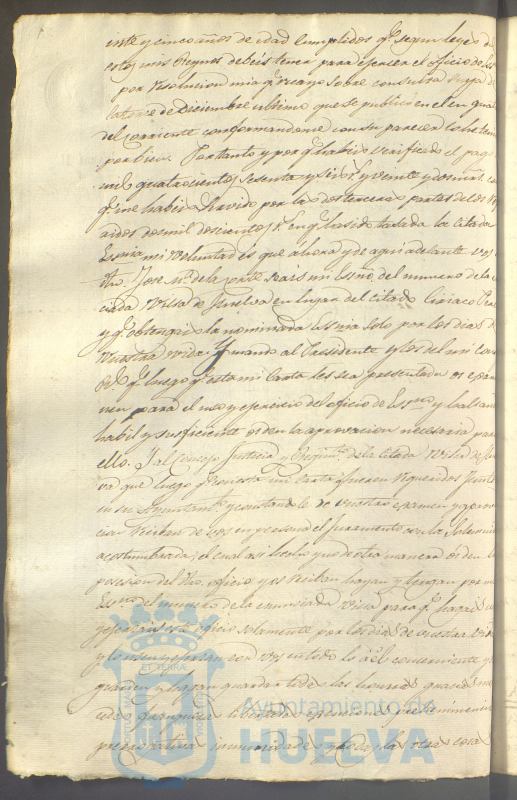 inte y cinco años de edad Cumplidos qᵉ segun leyes de
estos mis Reynos debeis tener para exercer el oficio de Ess
por Resolucion mia qᵉ recayo sobre consulta suya de
Catorce de Diciembre ultimo que se publicó en el en qua
del corriente conformandome con su parecer lo he ten
por bien. Por tanto y por qᵉ habeis verificado el pago
mil quatrocientos sesenta y seis rˢ y veinte y dos mrs. co
qᵉ me habeis servido por las dos terceras partes de los
dos mil doscientos rˢ en qᵉ ha sido tasada la citada
Essnia mi voluntad es que ahora y de aqui adelante vos
dho. Jose Mª de la Corte seais mi Essnᵒ del numero de la
ciada Villa de Huelva en lugar del citado Ciriaco
y qᵉ obtengais la nominada Essnia solo por los dias de
vuestra vida. Y mando al Presidente y los del mi Cons
qᵉ luego qᵉ esta mi Carta les sea presentada os exami
nen para el uso y exercicio del oficio de Essnᵒ y hallan
habil y suficiente os den la aprovacion necesaria para
ello. Y al Concejo Justicia y Regimᵗᵒ de la citada Villa de Huel
va que luego qᵉ con esta mi carta fueren requeridos Juntos
en su Ayuntamᵗᵒ y constandole de vuestro examen y aprova
cion Reciban de vos en persona el juramento con la solemni
acostumbrada, el cual asi hecho y no de otra manera os den la
posesion del dho. oficio y os reciban hayan y tengan por mi
Essnᵒ del numero de la enunciada Villa para qᵉ hagais
exerzais este oficio solamente por los dias de vuestra vida
y lo usen y exerzan con vos en todo lo á él concerniente y
guarden y hagan guardar todas las honras gracias mer
cedes franquicias libertades exenciones preeminencias
prerrogativas inmunidades y todas las otras cosas
ET TERRÆ
Ayuntamiento de
HUELVA